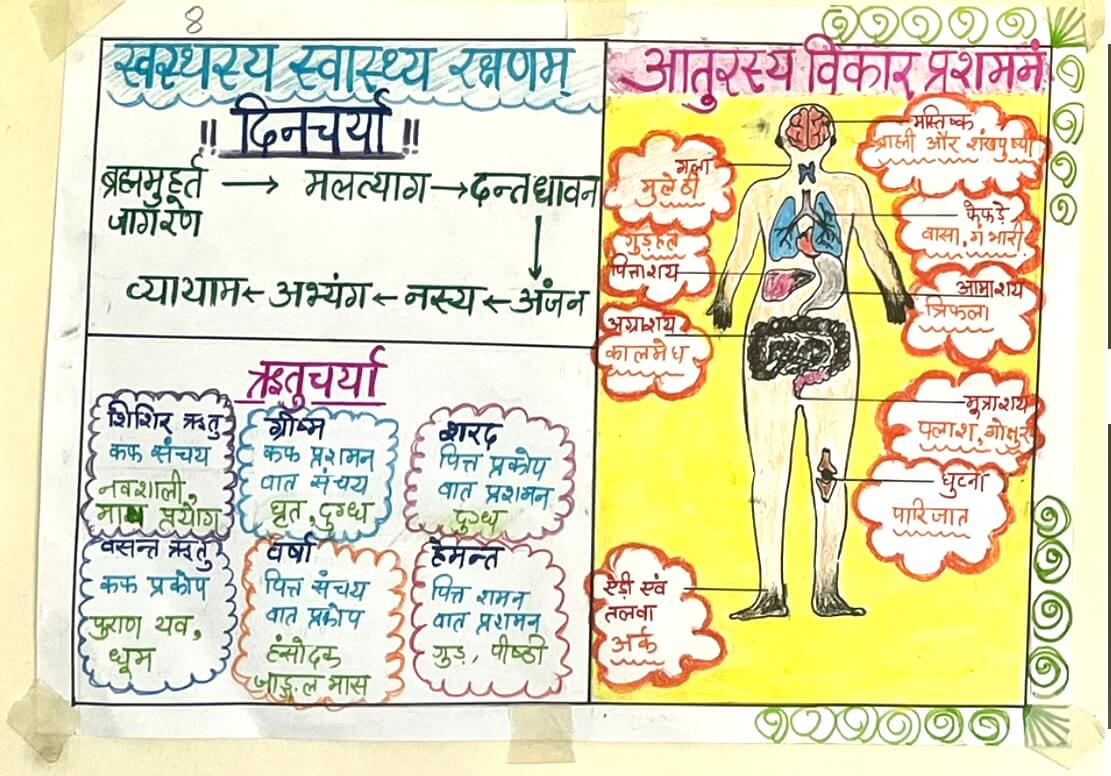 8
स्वस्थस्य स्वास्थ्य रक्षणम्
!! दिनचर्या !!
ब्रह्ममुहूर्त → मलत्याग → दन्तधावन
जागरण
व्यायाम ← अभ्यंग ← नस्य ← अंजन
ऋतुचर्या
शिशिर ऋतु
कफ संचय
नवशाली,
प्रयोग
ग्रीष्म
कफ प्रशमन
वात संचय
घृत, दुग्ध
शरद
पित्त प्रकोप
वात प्रशमन
दुग्ध
वसन्त ऋतु
कफ प्रकोप
पुराण यव,
धूम
वर्षा
पित्त संचय
वात प्रकोप
हंसोदक
जाङ्गल मास
हेमन्त
पित्त शमन
वात प्रशमन
गुड़, पीष्ठी
आतुरस्य विकार प्रशमनं
मस्तिष्क
ब्राह्मी और शंखपुष्पी
गला
मुलेठी
फेफड़े
वासा, गंभारी
गुड़हल
पित्ताशय
आमाशय
त्रिफला
अग्राशय
कालमेघ
मूत्राशय
पलाश, गोक्षुर
घुटना
पारिजात
ऐड़ी एवं
तलवा
अर्क